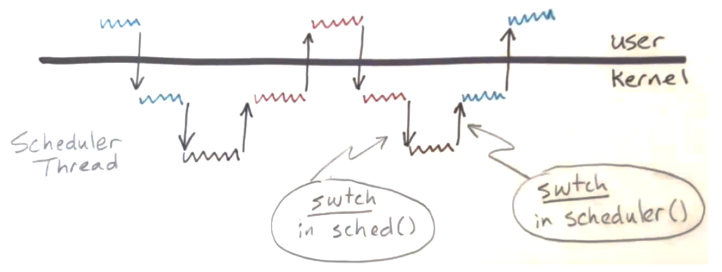 user
Kernel
Scheduler
Thread
swtch
in sched()
swtch
in scheduler()